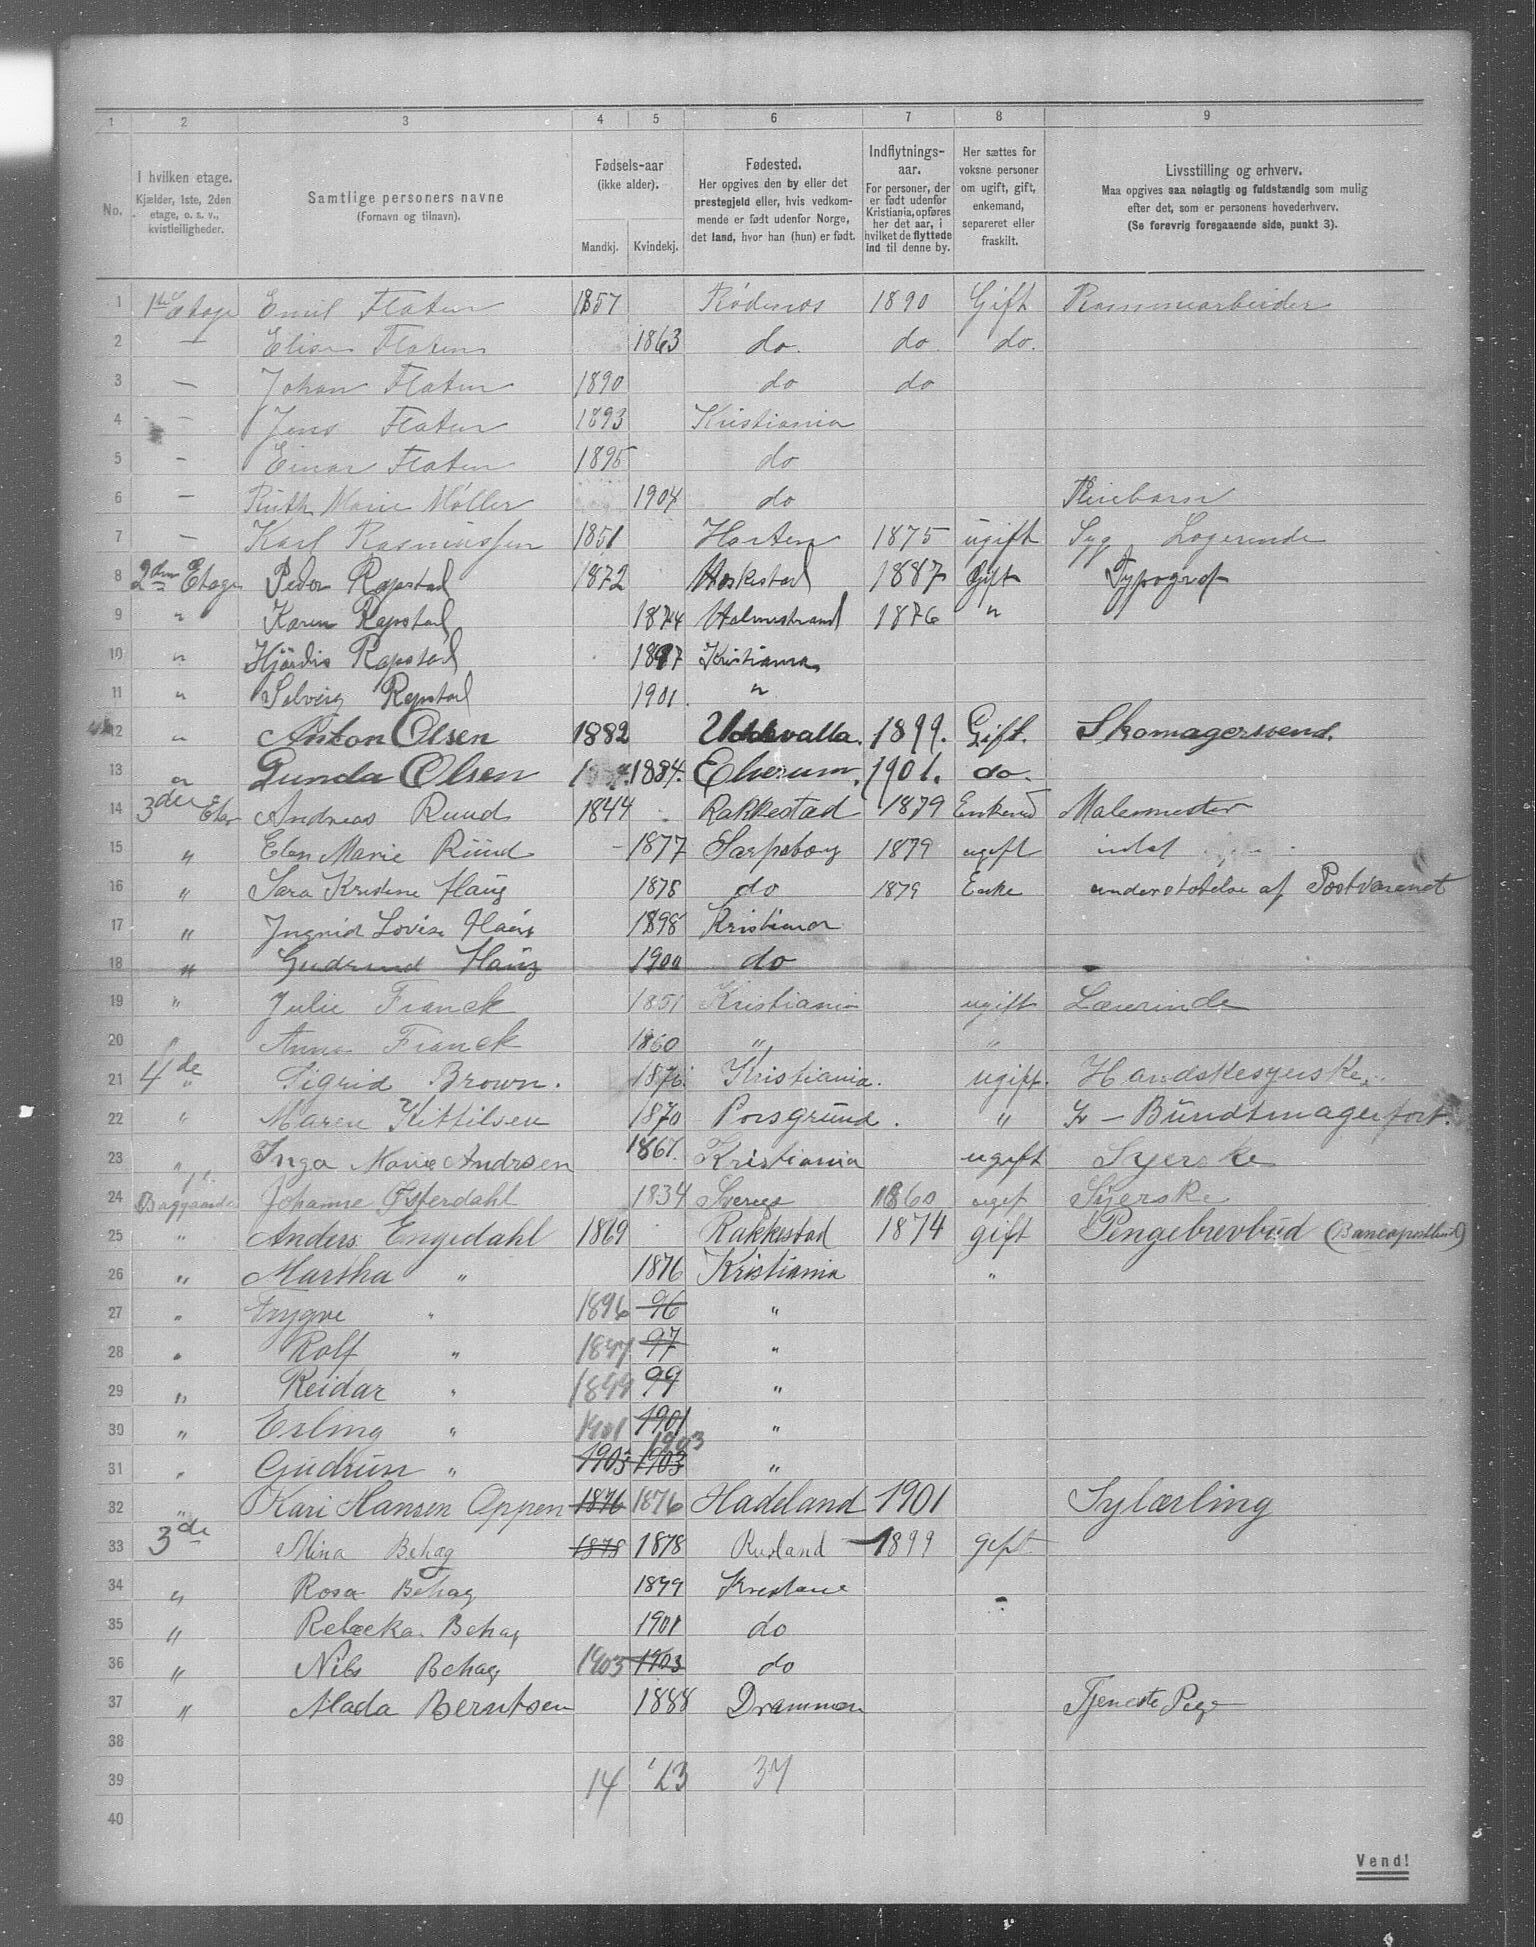 1 2 3 4 5 6 7 8 9
No. | I hvilken etage. Kjælder, 1ste, 2den etage, o. s. v., kvistleiligheder. | Samtlige personers navne (Fornavn og tilnavn). | Fødsels-aar (ikke alder). Mandkj. Kvindekj. | Fødested. Her opgives den by eller det prestegjeld eller, hvis vedkommende er født udenfor Norge, det land, hvor han (hun) er født. | Indflytnings-aar. For personer, der er født udenfor Kristiania, opføres her det aar, i hvilket de flyttede ind til denne by. | Her sættes for voksne personer om ugift, gift, enkemand, separeret eller fraskilt. | Livsstilling og erhverv. Maa opgives saa nøiagtig og fuldstændig som mulig efter det, som er personens hovederhverv. (Se forøvrig foregaaende side, punkt 3).
1 1ste Etage Emil Flaten 1857 Rødenes 1890 Gift
2 — Elise Flaten 1863 do. do. do.
3 — Johan Flaten 1890 do do
4 — Jens Flaten 1893 Kristiania
5 — Einar Flaten 1895 do
6 — Ruth Marie Møller 1904 do Pleiebarn
7 — Karl Rasmussen 1851 Horten 1875 ugift Syg Logerende
8 2den Etage Peder Rapstad 1872 1887 Gift Typograf
9 " Karen Rapstad 1874 Holmestrand 1876 "
10 " Hjørdis Rapstad 1897 Kristiania
11 " Solveig Rapstad 1901 "
12 " Anton Olsen 1882 Uddevalla. 1899. Gift. Skomagersvend.
13 " Gunda Olsen 1884. Elverum. 1901. do.
14 3die Etag Andreas Ruud 1844 Rakkestad 1879 Enkemd Malermester
15 " Elen Marie Ruud 1877 Sarpsborg 1879 ugift intet
16 " Sara Kristine Haug 1875 do 1879 Enke understøtelse af Postvæsenet
17 " Ingrid Lovise Haug 1898 Kristiania
18 " Gudrund Haug 1900 do
19 " Julie Franck 1851 Kristiania ugift Lærerinde
20 " Anna Franck 1860 " "
21 4de " Sigrid Brown. 1876. Kristiania. ugift. Handskesyerske.
22 " Maren Kittilsen 1870 Porsgrund. " — Bundtmagerfort.
23 " Inga Marie Andrsen 1867. Kristiania ugift Syerske
24 Baggaarde Johanne Østerdahl 1834 Sverige 1860 ugif Syerske
25 " Anders Engedahl 1869 Rakkestad 1874 gift Pengebrevbud (Bancopostbud)
26 " Martha " 1876 Kristiania "
27 " Trygve " 1896 96 "
28 " Rolf " 1897 97 "
29 " Reidar " 1899 99 "
30 " Erling " 1901 1901 "
31 " Gudrun " 1903 1903 1903 "
32 " Kari Hansen Oppen 1876 1876 Hadeland 1901 Sylærling
33 3de Mina Behag 1878 1878 Rusland 1899 gift
34 " Rosa Behag 1899 Kristiane
35 " Rebecka Behag 1901 do
36 " Nils Behag 1903 1903 do
37 " Alada Berntsen 1888 Drammen Tjeneste Pige
38
39 14 23 37
40
Vend!